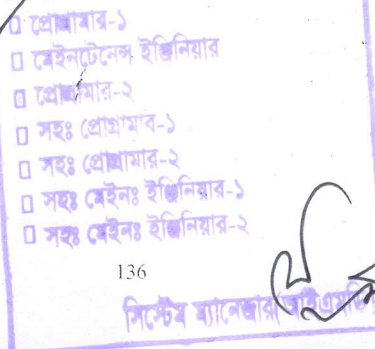 প্রোগ্রামার-১
মেইনটেনেন্স ইঞ্জিনিয়ার
প্রোগ্রামার-২
সহঃ প্রোগ্রামার-১
সহঃ প্রোগ্রামার-২
সহঃ মেইনঃ ইঞ্জিনিয়ার-১
সহঃ মেইনঃ ইঞ্জিনিয়ার-২
136
সিস্টেম ম্যানেজার